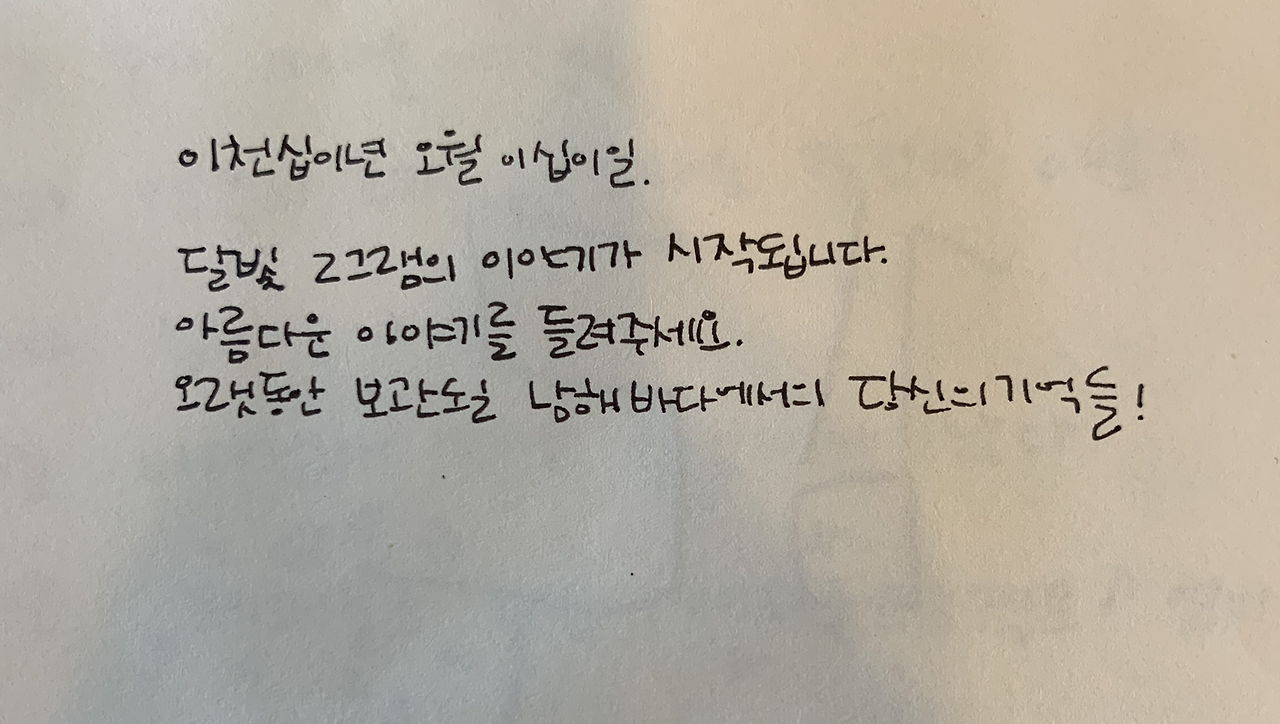 이천십이년 오월 이십이일.
달빛 2그램의 이야기가 시작됩니다.
아름다운 이야기를 들려주세요.
오랫동안 보관도일 남해바다에서의 당신의기억들!